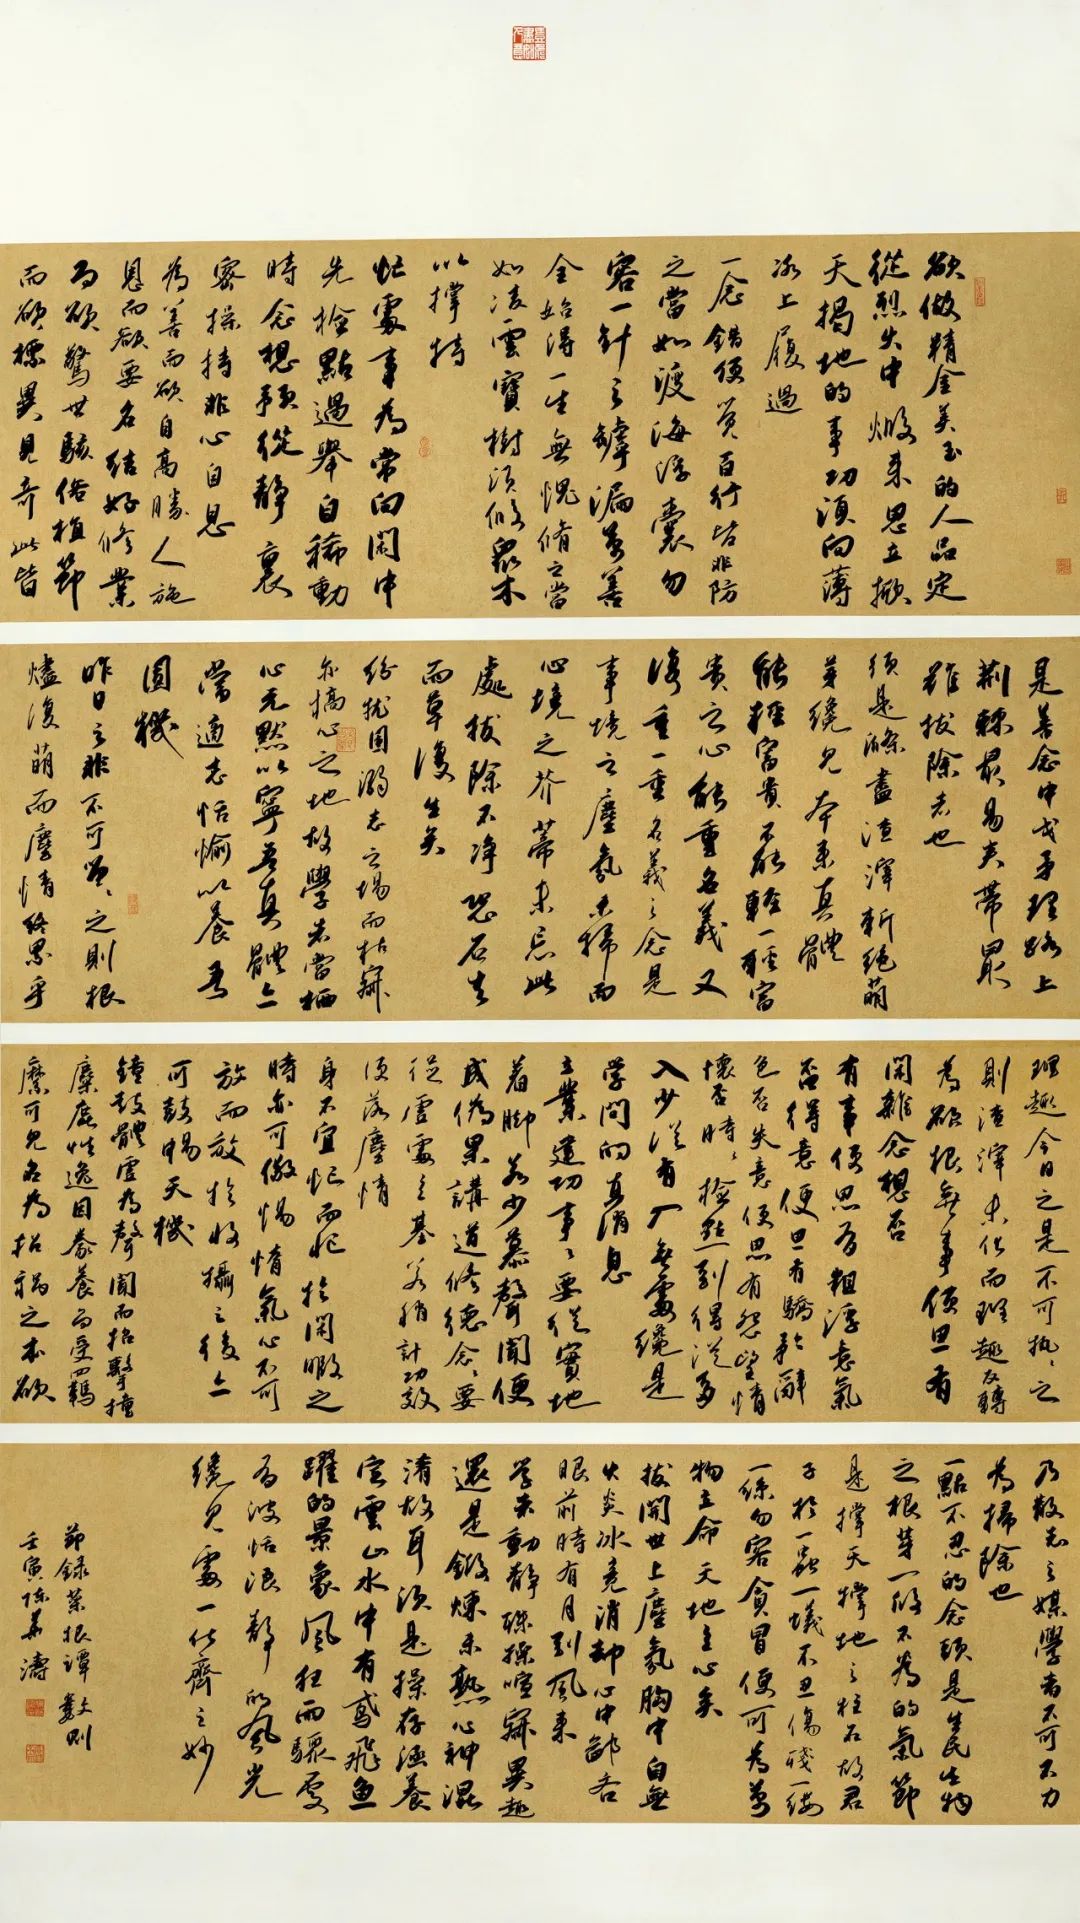 欲做精金美玉的人品定
從烈火中煅來思立掀
天揭地的事功須向薄
冰上履過
一念錯便覺百行皆非防
之當如渡海浮囊勿
容一針之罅漏萬善
全始得一生無愧脩之當
如凌雲寶樹須假眾木
以撐持
忙處事為常向閑中
先檢點過舉自稀動
時念想預從靜裏
密操持非心自息
為善而欲自高勝人施
恩而欲要名結好修業
而欲驚世駭俗植節
而欲標異見奇此皆
是善念中戈矛理路上
荆棘最易夾帶最
難拔除者也
須是滌盡渣滓斬絕萌
芽纔見本來真體
能輕富貴不能輕一輕富
貴之心能重名義又
復重一重名義之念是
事境之塵氛未掃而
心境之芥蒂未忘此
處拔除不淨恐石去
而草復生矣
紛擾固溺志之場而枯寂
亦槁心之地故學者當栖
心元默以寧吾真體亦
當適志恬愉以養吾
圓機
昨日之非不可留留之則根
燼復萌而塵情終累乎
理趣今日之是不可執執之
則渣滓未化而理趣反轉
為欲根無事便思有
閑雜念想否
有事便思有粗浮意氣
否得意便思有驕矜辭
色否失意便思有怨望情
懷否時時檢點到得從多
入少從有入無處纔是
学問的真消息
立業建功事事要從實地
着腳若少慕聲聞便
成偽果講道修德念念要
從虛處立基若稍計功效
便落塵情
身不宜忙而忙於閑暇之
時亦可儆惕惰氣心不可
放而放於收攝之後亦
可鼓暢天機
鐘鼓體虛為聲聞而招擊撞
麋鹿性逸因豢養而受羈
縻可見名為招禍之本欲
乃散志之媒學者不可不力
為掃除也
一點不忍的念頭是生民生物
之根芽一段不為的氣節
是撐天撐地之柱石故君
子於一蟲一蟻不忍傷殘一縷
一絲勿容貪冒便可為萬
物立命天地立心矣
撥開世上塵氛胸中自無
火炎冰竟消却心中鄙吝
眼前時有月到風來
學者動靜殊操喧寂異趣
還是鍛煉未熟心神混
淆故耳須是操存涵養
定雲止水中有鳶飛魚
躍的景象風狂雨驟處
有波恬浪靜的風光
纔見處一化齊之妙
節録菜根譚數則
壬寅陈華濤